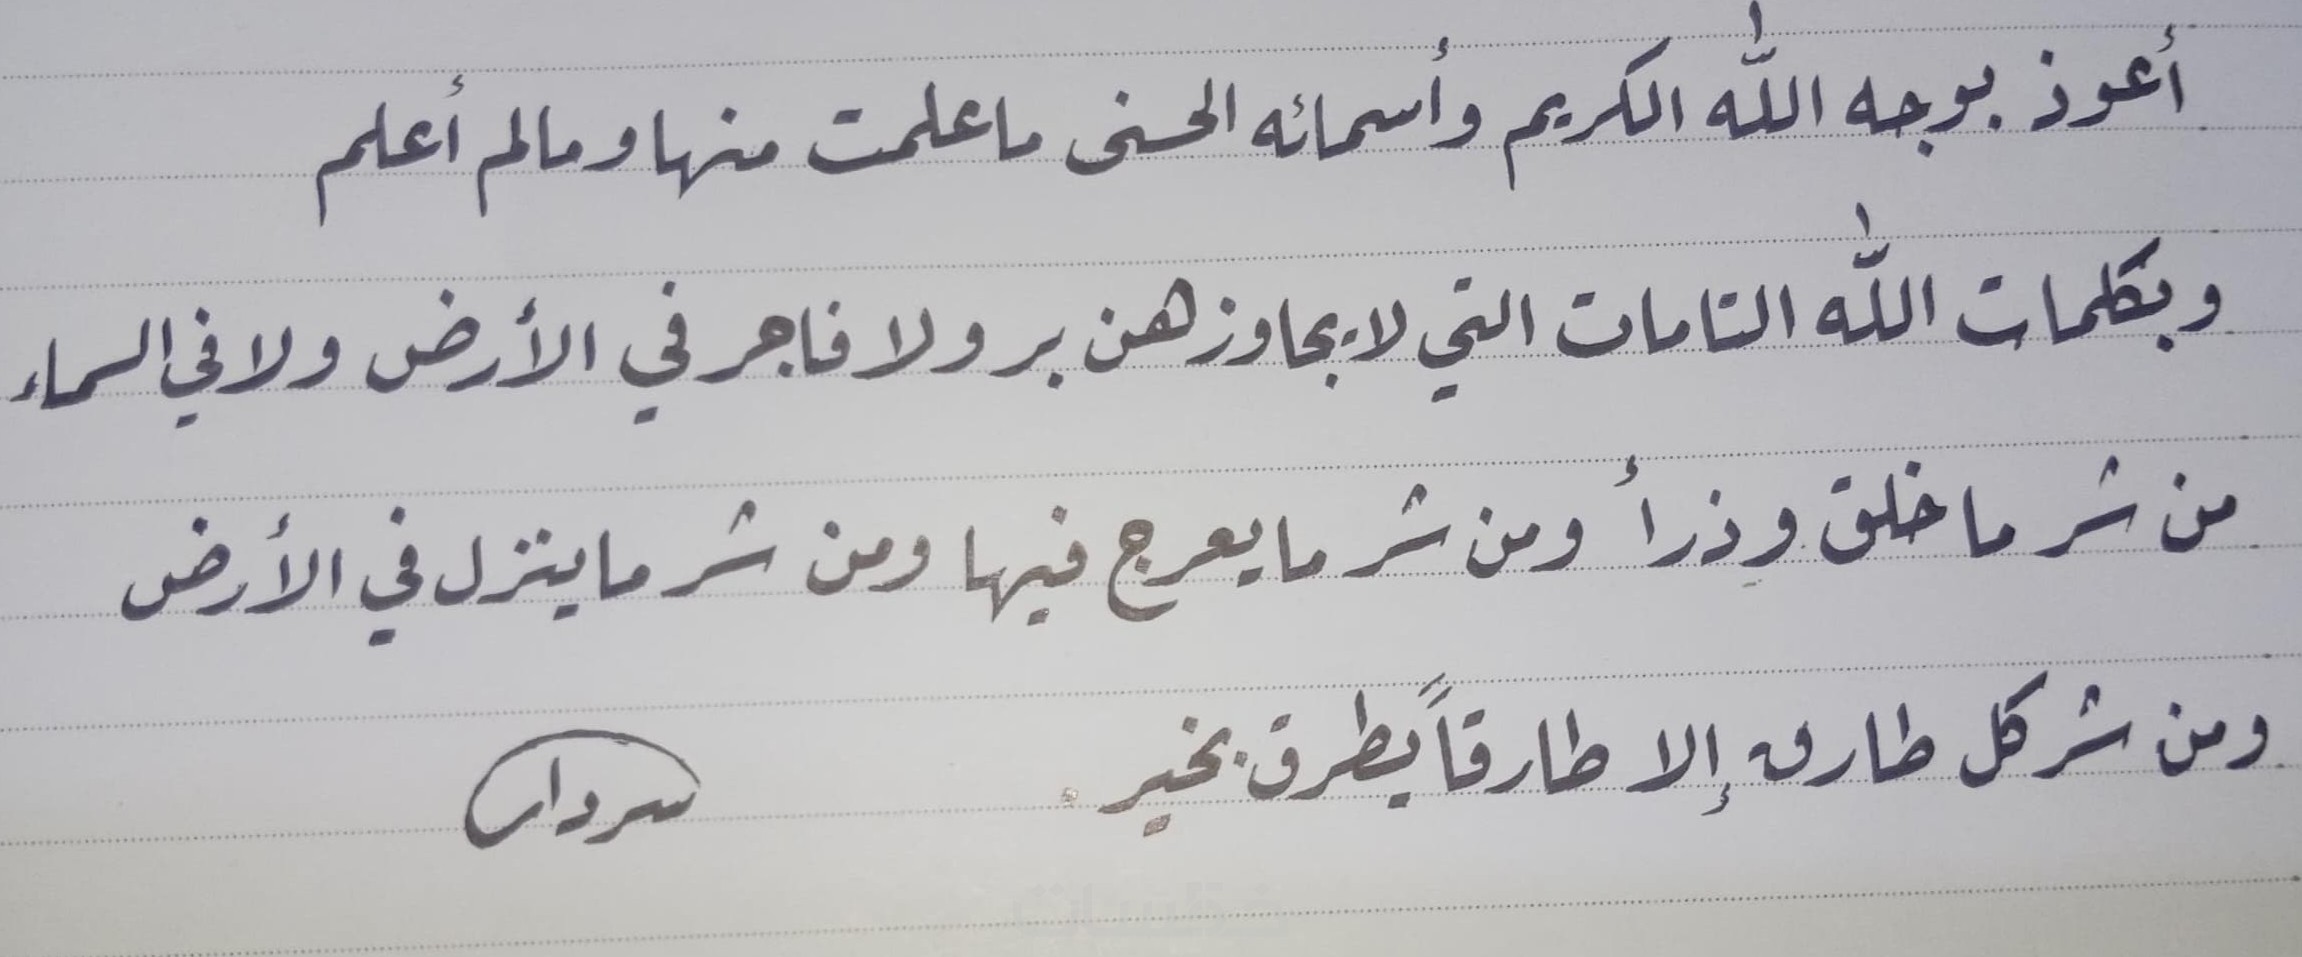 أعوذ بوجه اللّه الكريم وأسمائه الحسنى ما علمت منها وما لم أعلم
وبكلمات اللّه التامات التي لا يجاوزهن بر ولا فاجر في الأرض ولا في السماء
من شر ما خلق وذرأ ومن شر ما يعرج فيها ومن شر ما ينزل في الأرض
ومن شر كل طارق إلا طارقاً يطرق بخير.
سردار